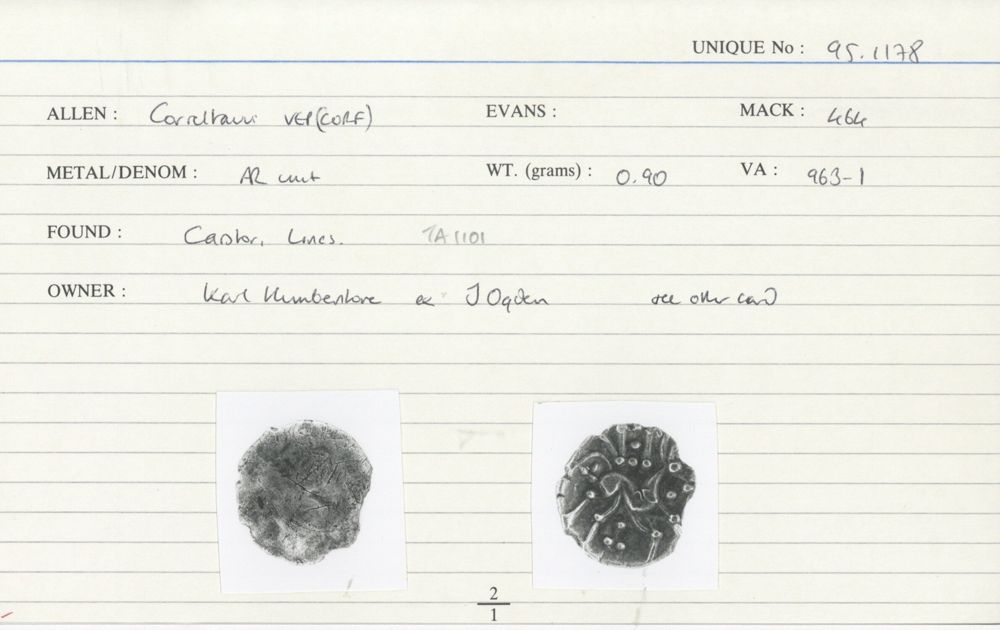 UNIQUE No : 95.1178
ALLEN : Corieltauvi VEP(CORF) EVANS : MACK : 464
METAL/DENOM : AR unit WT. (grams) : 0.90 VA : 963-1
FOUND : Caistor, Lincs. TA1101
OWNER : Karl Humberstone ex J Ogden see other card
2
1